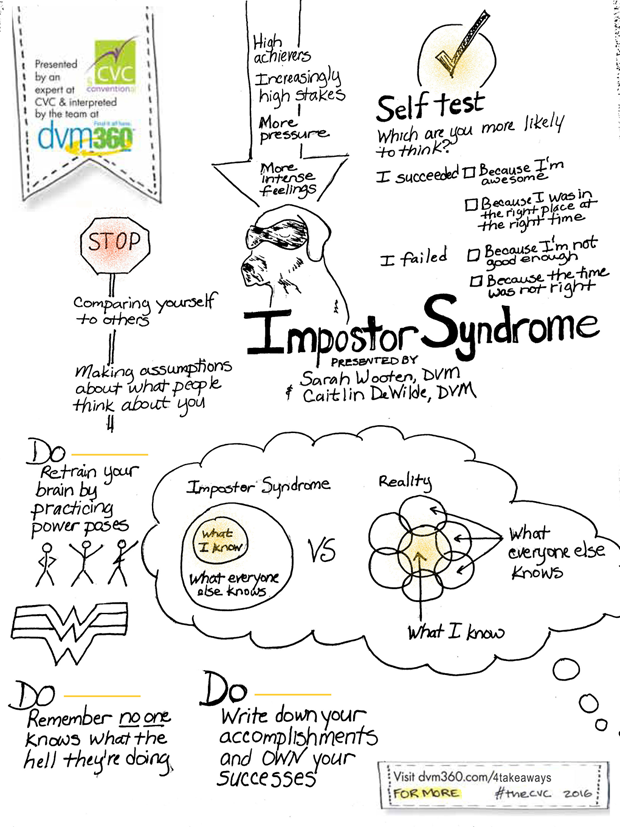 Presented
by an
expert at
CVC & interpreted
by the team at
CVC
convention
Find it all here.
dvm360
High
achievers
Increasingly
high stakes
More
pressure
More
intense
feelings
Self test
Which are you more likely
to think?
I succeeded
Because I'm
awesome
Because I was in
the right place at
the right time
I failed
Because I'm not
good enough
Because the time
was not right
STOP
Comparing yourself
to others
Making assumptions
about what people
think about you
Impostor Syndrome
PRESENTED BY
Sarah Wooten, DVM
& Caitlin DeWilde, DVM
Do
Retrain your
brain by
practicing
power poses
Impostor Syndrome
What
I know
What everyone
else knows
VS
Reality
What
everyone else
knows
What I know
Do
Remember no one
knows what the
hell they're doing
Do
Write down your
accomplishments
and OWN your
successes
Visit dvm360.com/4takeaways
FOR MORE #thecvc 2016